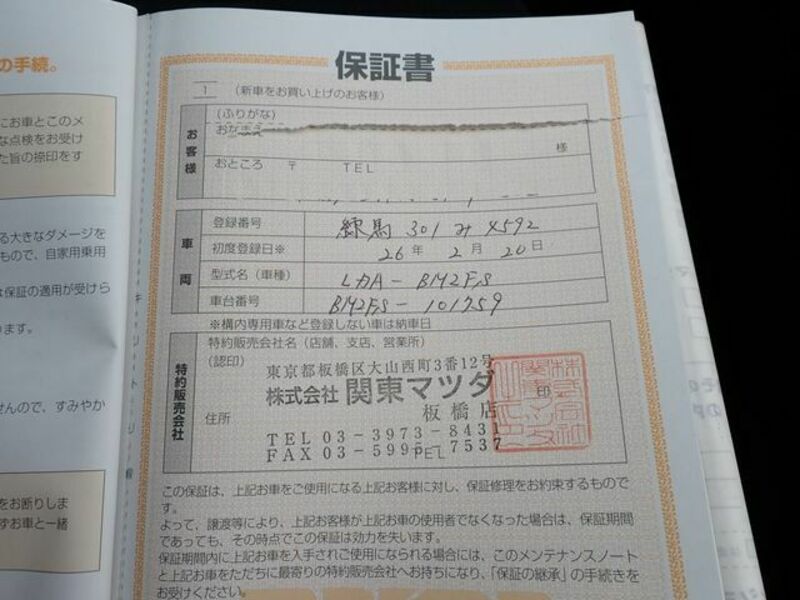 の手続。
にお車とこのメ
な点検をお受け
た旨の捺印をす
る大きなダメージを
もので、自家用乗用
は保証の適用が受けら
ります。
せんので、すみやか
をお断りしま
ずお車と一緒
キリトリ線
保証書
1 (新車をお買い上げのお客様)
お客様
(ふりがな)
おなまえ
様
おところ 〒 TEL
車両
登録番号 練馬 301 み 4592
初度登録日※ 26年 2月 20日
型式名(車種) LDA-BM2FS
車台番号 BM2FS-101759
※構内専用車など登録しない車は納車日
特約販売会社
特約販売会社名(店舗、支店、営業所)
(認印)
東京都板橋区大山西町3番12号
株式会社 関東マツダ
印
板橋店
住所
TEL 03-3973-8431
FAX 03-5995-7537
TEL
この保証は、上記お車をご使用になる上記お客様に対し、保証修理をお約束するもので
す。
よって、譲渡等により、上記お客様が上記お車の使用者でなくなった場合は、保証期間
であっても、その時点でこの保証は効力を失います。
保証期間内に上記お車を入手されご使用になられる場合には、このメンテナンスノート
と上記お車をただちに最寄りの特約販売会社へお持ちになり、「保証の継承」の手続きを
お受けください。